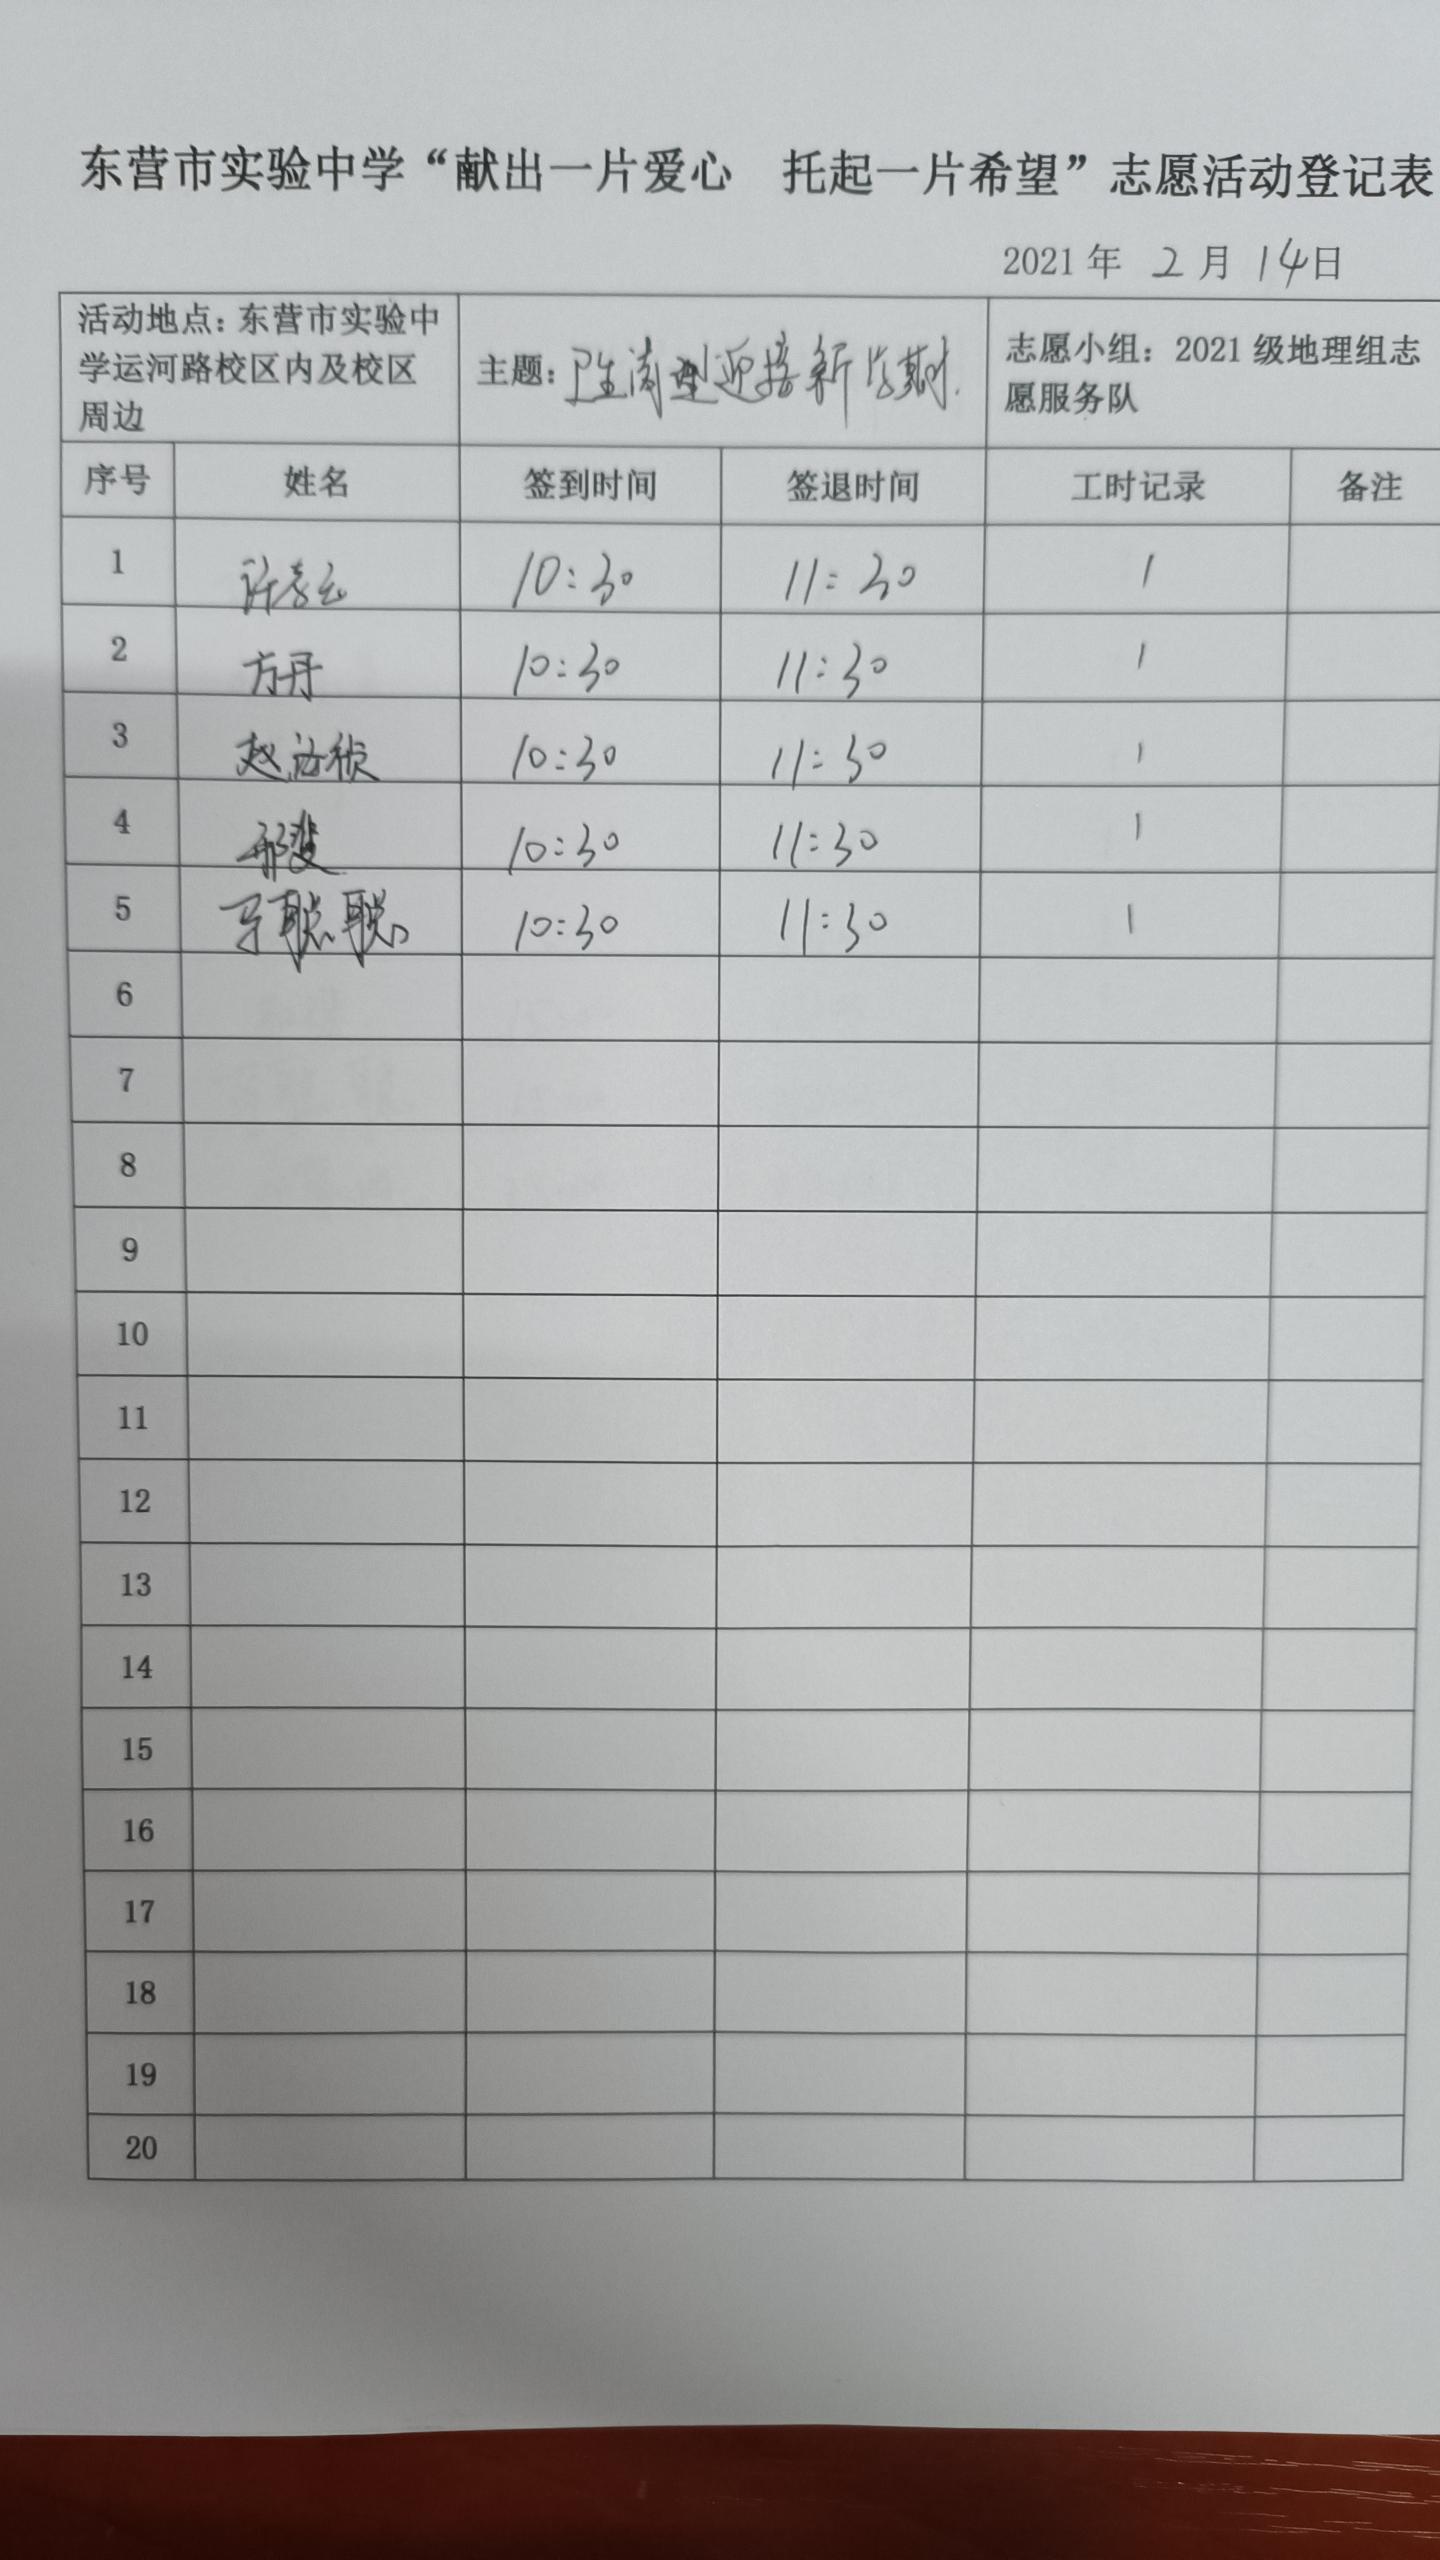 东营市实验中学“献出一片爱心 托起一片希望”志愿活动登记表
2021 年 2 月 14 日
活动地点：东营市实验中
学运河路校区内及校区
周边
主题：卫生清理迎接新学期.
志愿小组：2021 级地理组志
愿服务队
序号 姓名 签到时间 签退时间 工时记录 备注
1 10:30 11:30 1
2 方丹 10:30 11:30 1
3 赵 10:30 11:30 1
4 10:30 11:30 1
5 聪聪 10:30 11:30 1
6
7
8
9
10
11
12
13
14
15
16
17
18
19
20